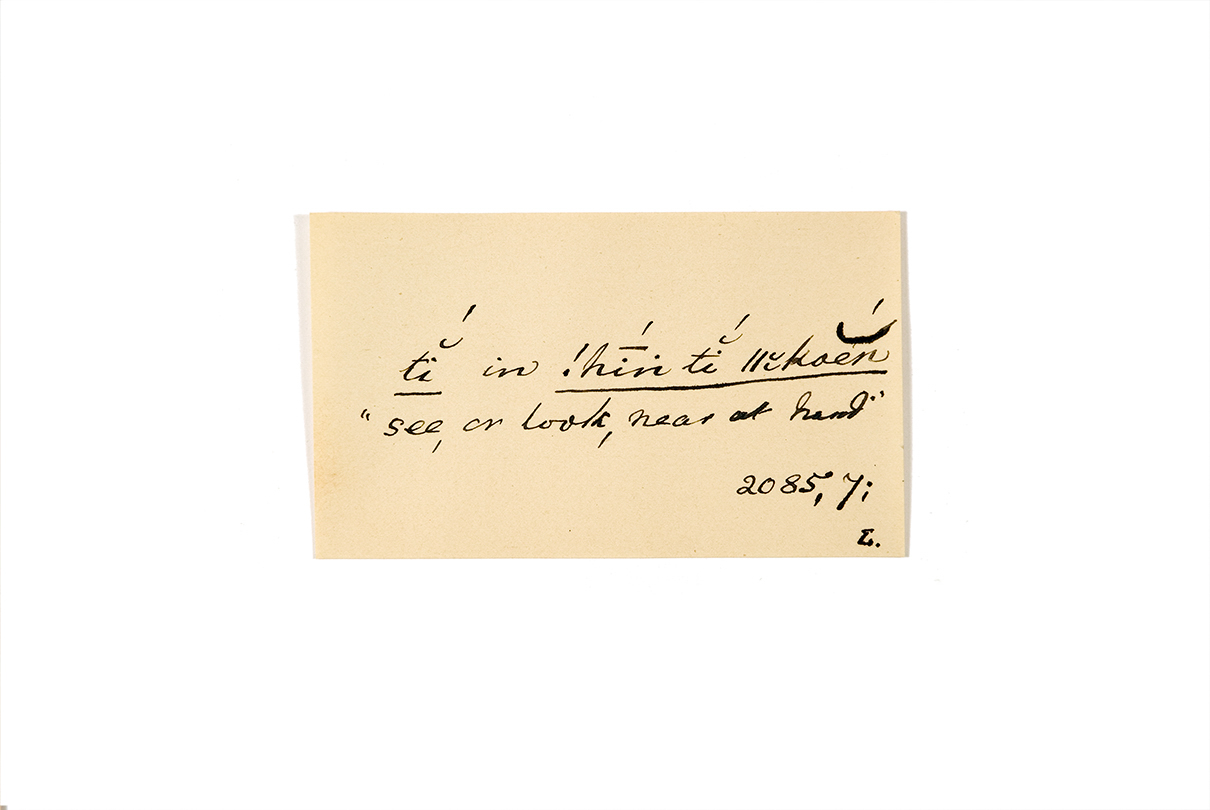 tĭ́ in !hī́n tĭ́ ǁkoĕ́n
"see, or look, near at hand"
2085, 7;
L.